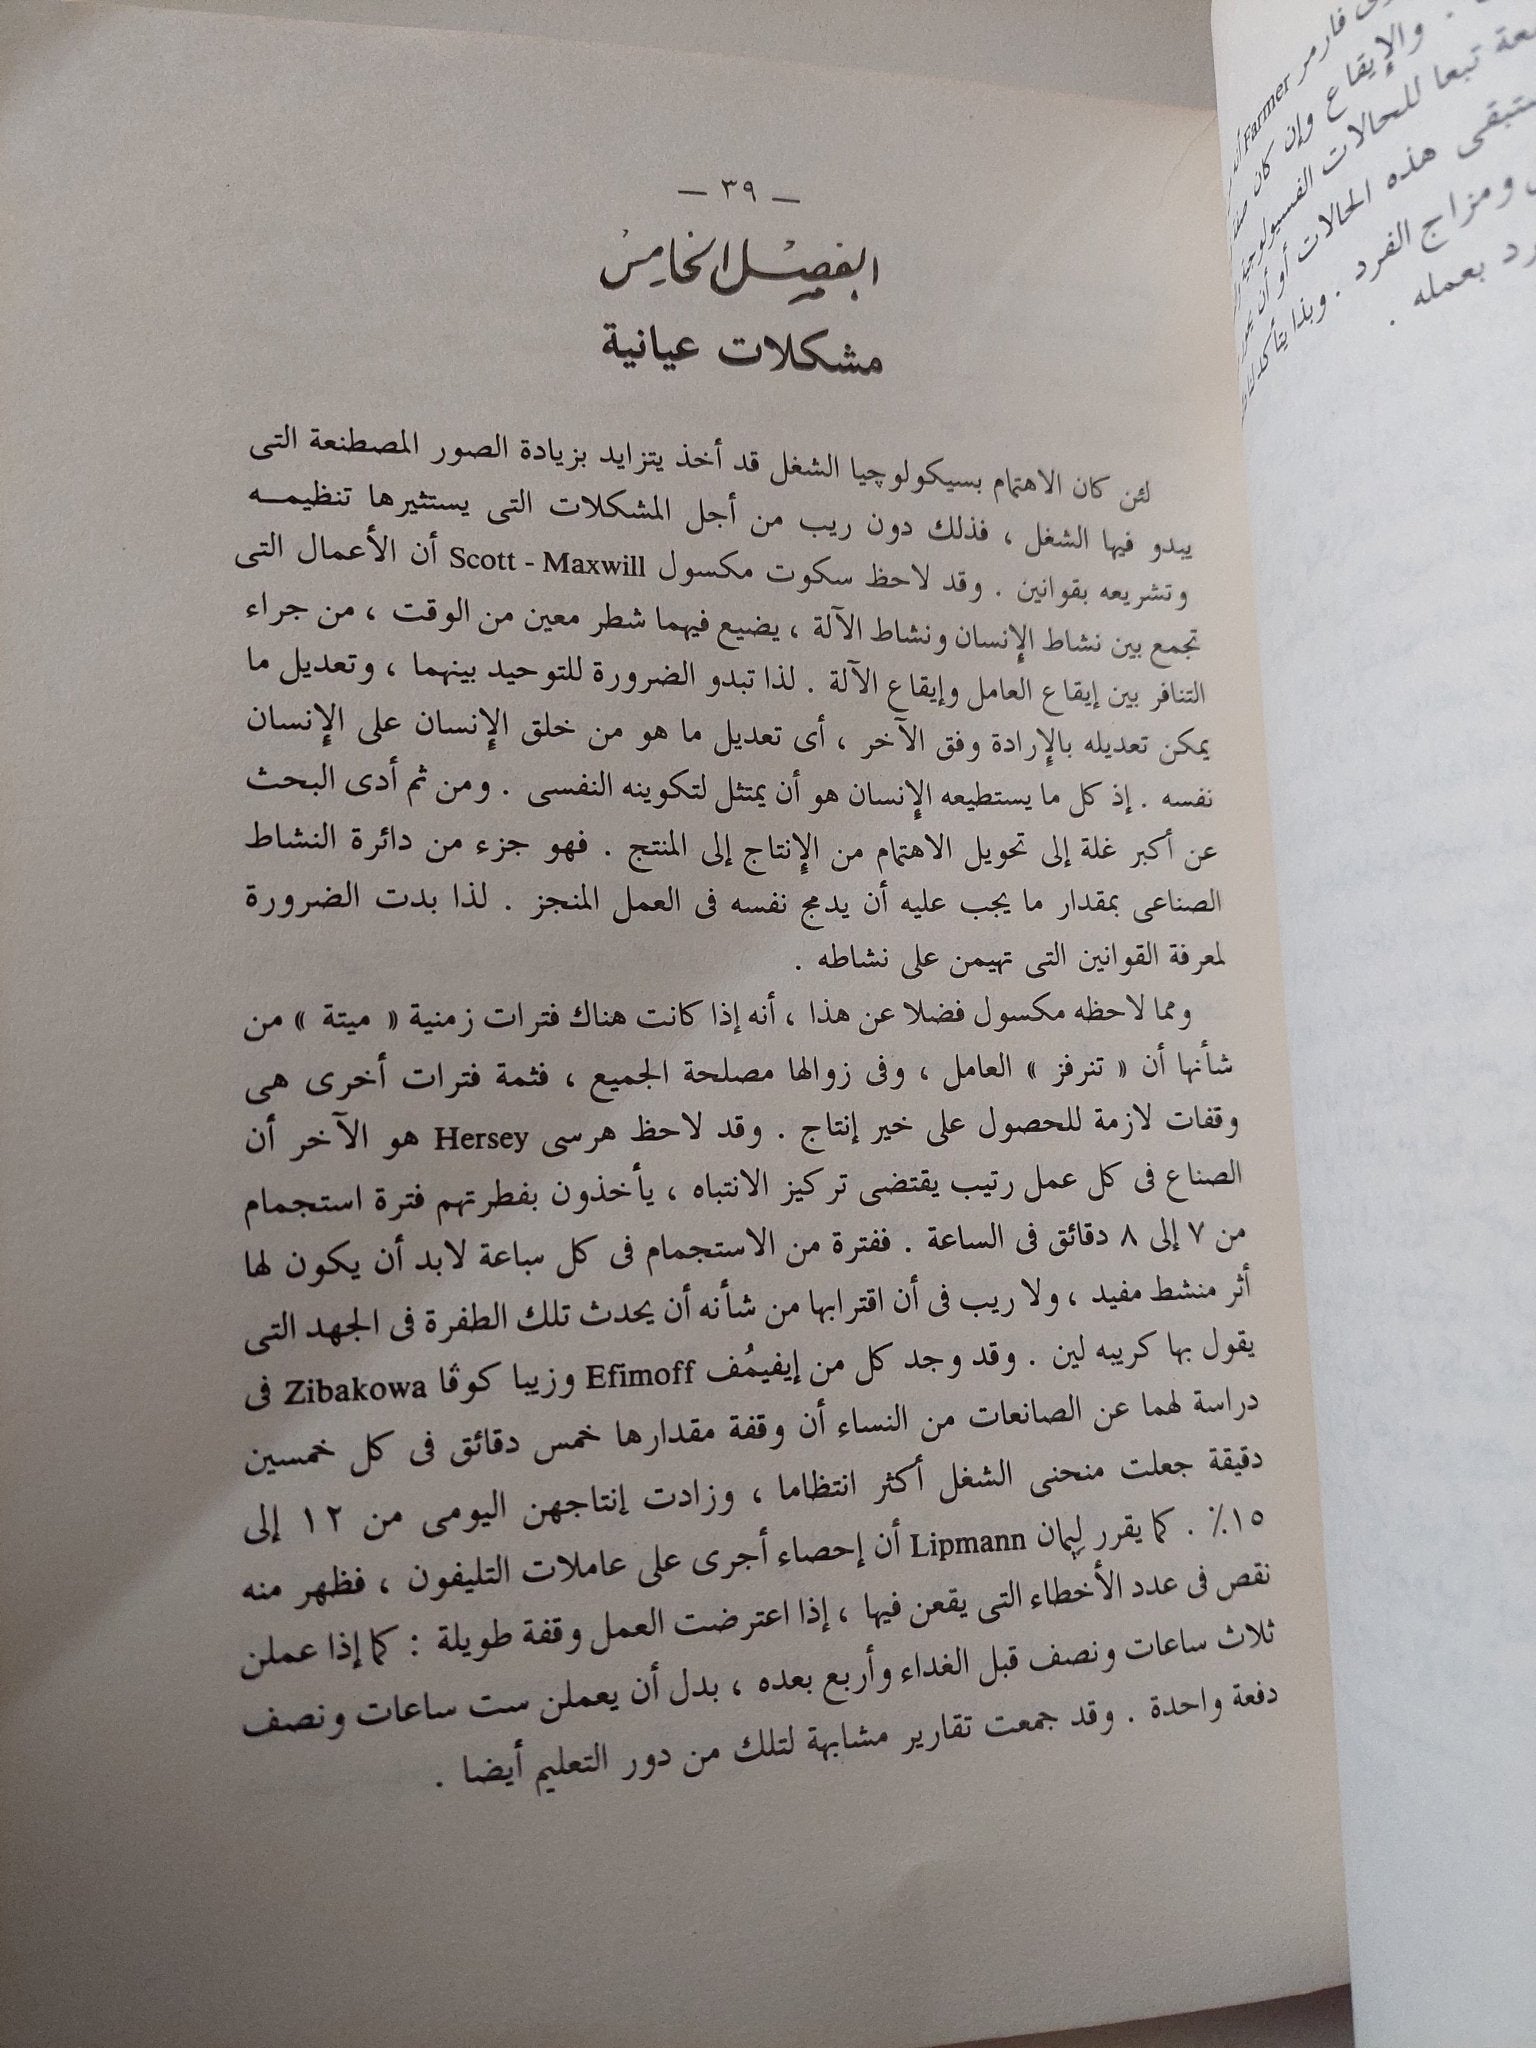 — ٣٩ —
الفصل الخامس
مشكلات عيانية
لئن كان الاهتمام بسيكولوچيا الشغل قد أخذ يتزايد بزيادة الصور المصطنعة التى
يبدو فيها الشغل ، فذلك دون ريب من أجل المشكلات التى يستثيرها تنظيمـــه
وتشريعه بقوانين . وقد لاحظ سكوت مكسول Scott - Maxwill أن الأعمال التى
تجمع بين نشاط الإنسان ونشاط الآلة ، يضيع فيهما شطر معين من الوقت ، من جراء
التنافر بين إيقاع العامل وإيقاع الآلة . لذا تبدو الضرورة للتوحيد بينهما ، وتعديل ما
يمكن تعديله بالإرادة وفق الآخر ، أى تعديل ما هو من خلق الإنسان على الإنسان
نفسه . إذ كل ما يستطيعه الإنسان هو أن يمتثل لتكوينه النفسى . ومن ثم أدى البحث
عن أكبر غلة إلى تحويل الاهتمام من الإنتاج إلى المنتج . فهو جزء من دائرة النشاط
الصناعى بمقدار ما يجب عليه أن يدمج نفسه فى العمل المنجز . لذا بدت الضرورة
لمعرفة القوانين التى تهيمن على نشاطه .
ومما لاحظه مكسول فضلا عن هذا ، أنه إذا كانت هناك فترات زمنية « ميتة » من
شأنها أن « تنرفز » العامل ، وفى زوالها مصلحة الجميع ، فثمة فترات أخرى هى
وقفات لازمة للحصول على خير إنتاج . وقد لاحظ هرسى Hersey هو الآخر أن
الصناع فى كل عمل رتيب يقتضى تركيز الانتباه ، يأخذون بفطرتهم فترة استجمام
من ٧ إلى ٨ دقائق فى الساعة . ففترة من الاستجمام فى كل ساعة لابد أن يكون لها
أثر منشط مفيد ، ولا ريب فى أن اقترابها من شأنه أن يحدث تلك الطفرة فى الجهد التى
يقول بها كريبه لين . وقد وجد كل من إيفيمُف Efimoff وزيبا كوڤا Zibakowa فى
دراسة لهما عن الصانعات من النساء أن وقفة مقدارها خمس دقائق فى كل خمسين
دقيقة جعلت منحنى الشغل أكثر انتظاما ، وزادت إنتاجهن اليومى من ١٢ إلى
١٥٪ . كما يقرر ليپمان Lipmann أن إحصاء أجرى على عاملات التليفون ، فظهر منه
نقص فى عدد الأخطاء التى يقعن فيها ، إذا اعترضت العمل وقفة طويلة : كما إذا عملن
ثلاث ساعات ونصف قبل الغداء وأربع بعده ، بدل أن يعملن ست ساعات ونصف
دفعة واحدة . وقد جمعت تقارير مشابهة لتلك من دور التعليم أيضا .
فارمر Farmer
. والإيقاع وإن كان
تبعا للحالات الفسيولوجية
هذه الحالات أو أن
ومزاج الفرد . وبذا يتأكد لنا
بعمله .